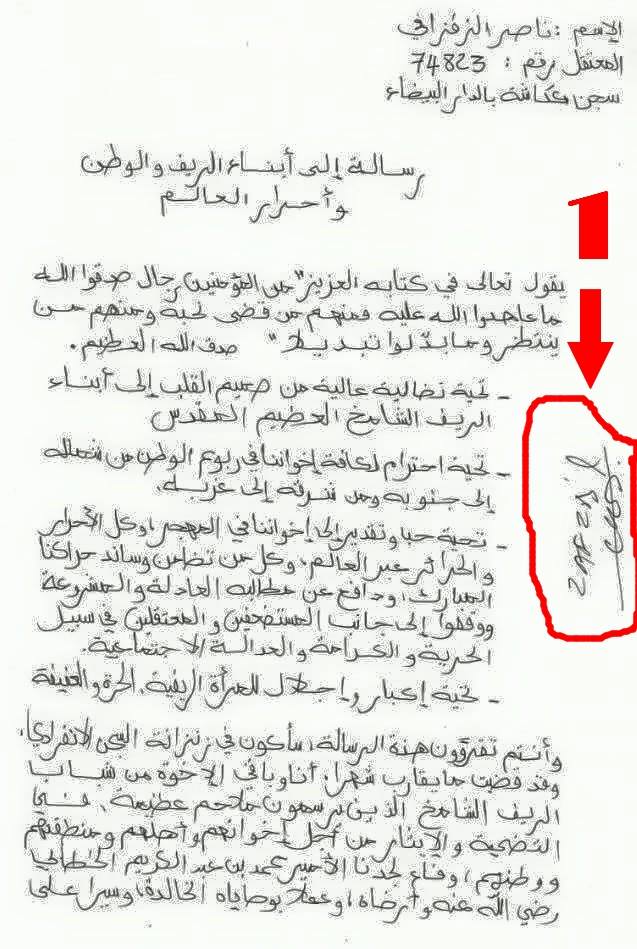 الإسم : ناصر الزفزافي
المعتقل رقم : 74823
سجن عكاشة بالدار البيضاء
رسالة إلى أبناء الريف والوطن
وأحرار العالم
يقول تعالى في كتابه العزيز "من المؤمنين رجال صدقوا الله
ما عاهدوا الله عليه فمنهم من قضى نحبه ومنهم من
ينتظر وما بدّلوا تبديلا" صدق الله العظيم.
- تحية نضالية عالية من صميم القلب إلى أبناء
الريف الشامخ العظيم المقدس
- تحية احترام لكافة إخواننا في ربوع الوطن من شماله
إلى جنوبه ومن شرقه إلى غربه.
- تحية حب وتقدير إلى إخواننا في المهجر، وكل الأحرار
والحرائر عبر العالم، وكل من تضامن وساند حراكنا
المبارك، ودافع عن مطالبه العادلة والمشروعة
ووقفوا إلى جانب المستضعفين والمعتقلين في سبيل
الحرية والكرامة والعدالة الاجتماعية.
- تحية إكبار وإجلال للمرأة الريفية، الحرة والعفيفة
وأنتم تقرؤون هذه الرسالة، سأكون في زنزانة السجن الانفرادي،
وقد قضيت ما يقارب شهرا، أنا وباقي الإخوة من شباب
الريف الشامخ الذين يرسمون ملاحم عظيمة، في
التضحية والإيثار من أجل إخوانهم وأهلهم ومنطقتهم
ووطنهم، وفاء لجدنا الأمير محمد بن عبد الكريم الخطابي
رضي الله عنه وأرضاه، وعملا بوصاياه الخالدة، وسيرا على